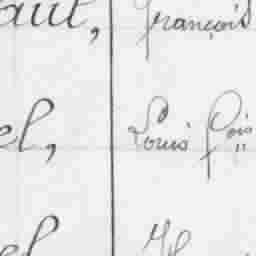 aut, François
el, Louis fçois
el